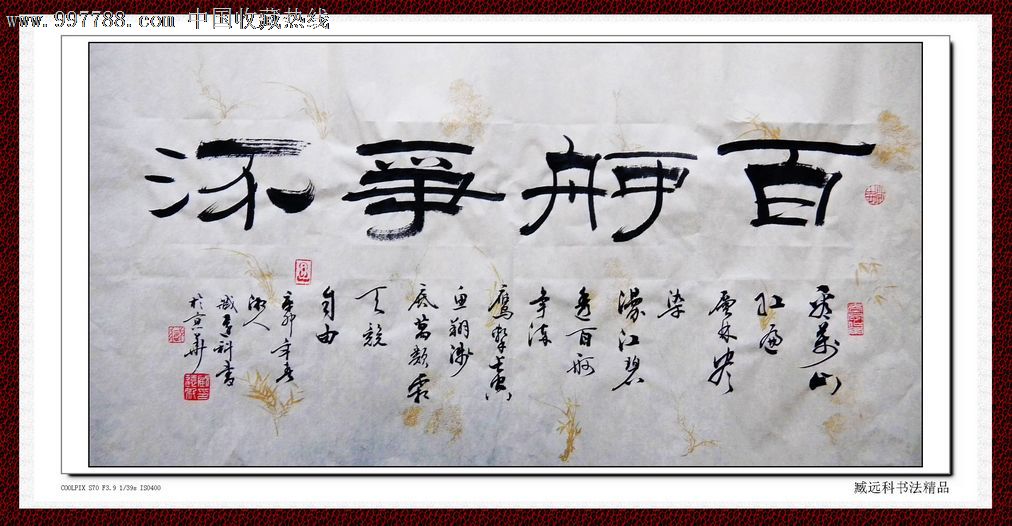 www.997788.com 中国收藏热线
百舸爭流
看萬山
紅遍
層林盡
染
漫江碧
透百舸
争流
鷹擊長空
魚翔淺
底萬類霜
天競
自由
辛卯年春
人
臧遠科書
於京華
COOLPIX S70 F3.9 1/39s ISO400
臧远科书法精品